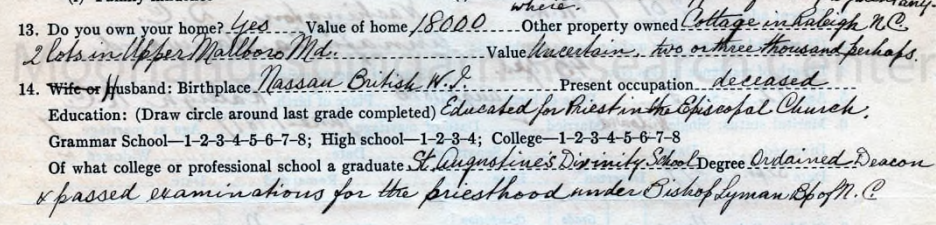 where.
13. Do you own your home? Yes Value of home 18000 Other property owned Cottage in Raleigh, N.C.
2 lots in Upper Mallboro Md. Value Uncertain, two or three thousand perhaps.
14. Wife or Husband: Birthplace Nassau British W.I. Present occupation deceased
Education: (Draw circle around last grade completed) Educated for Priest in the Episcopal Church.
Grammar School—1-2-3-4-5-6-7-8; High school—1-2-3-4; College—1-2-3-4-5-6-7-8
Of what college or professional school a graduate St. Augustine's Divinity School Degree Ordained Deacon
& passed examinations for the priesthood under Bishop Lyman Bp of N.C